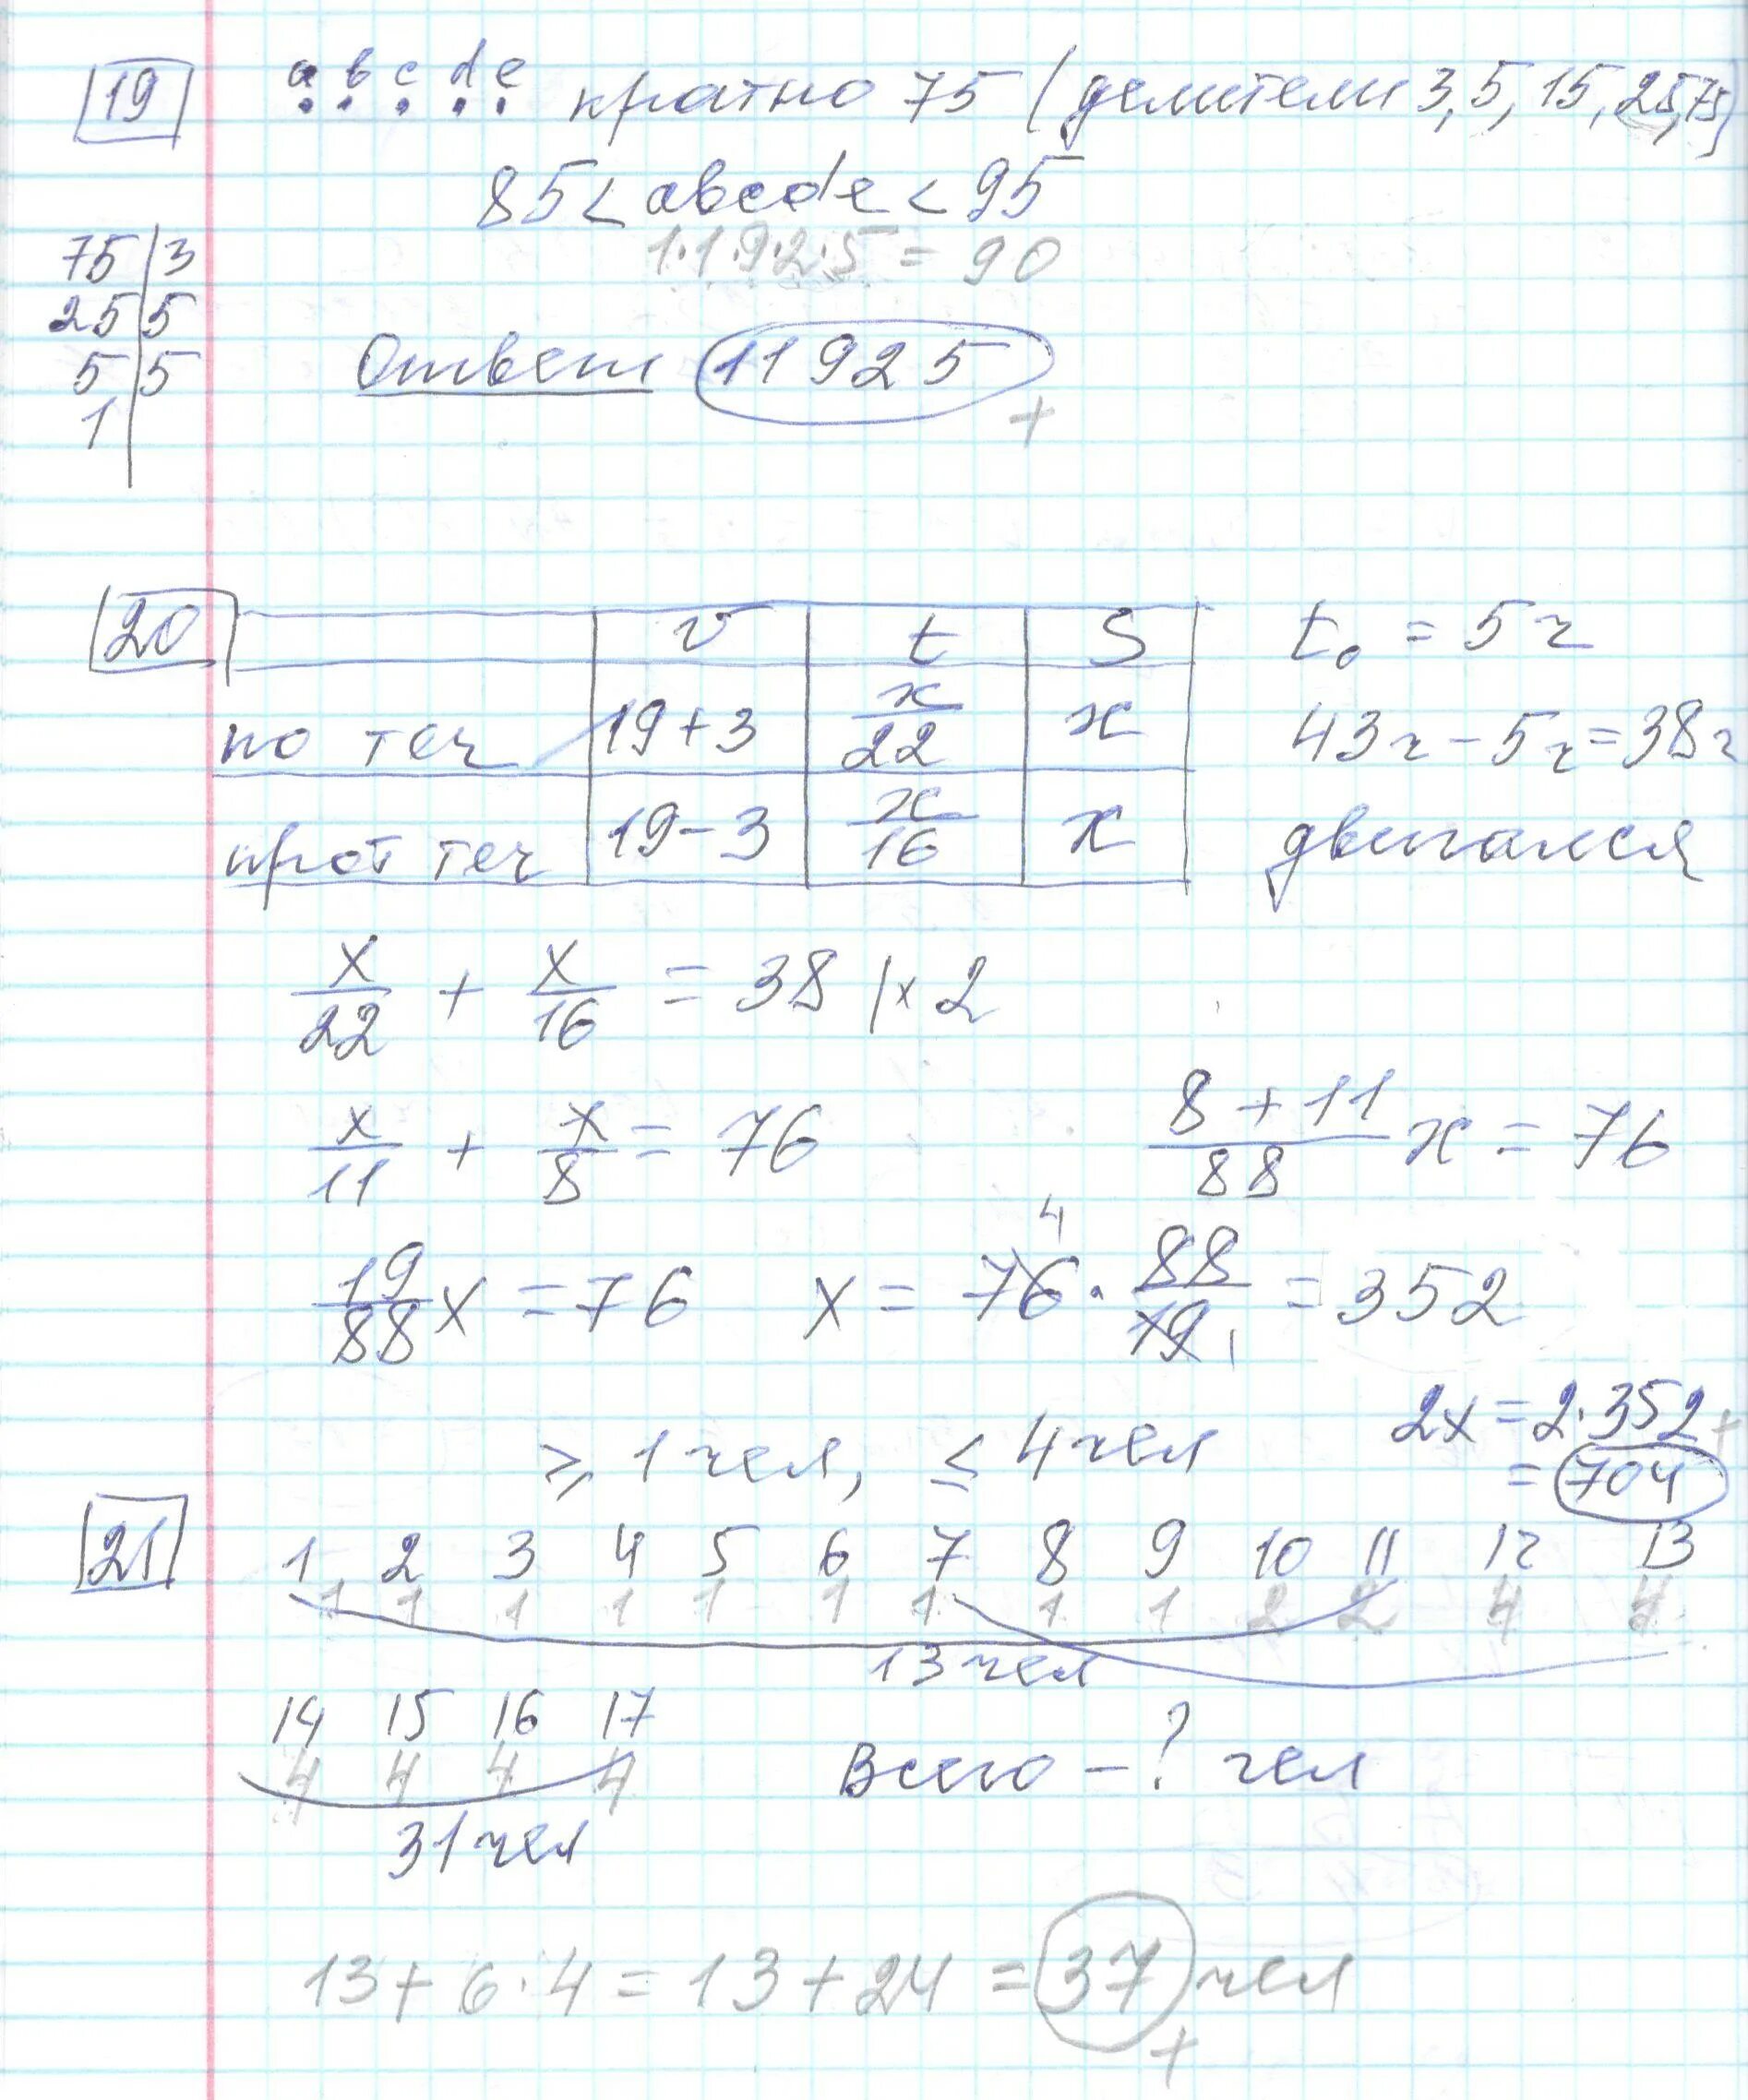 19 a b c d e кратно 75 (делители 3, 5, 15, 25, 75)
85 < abcde < 95
1·1·9·2·5 = 90
75 | 3
25 | 5
5 | 5
1 |
Ответ 11925
+
20 v t S t₀ = 5ч
по теч 19+3 x/22 x 43ч - 5ч = 38ч
прот теч 19-3 x/16 x двигался
x/22 + x/16 = 38 |× 2
x/11 + x/8 = 76 (8+11)/88 x = 76
19/88 x = 76 x = 76 · 88/19 = 352
4 1
2x = 2·352 +
= 704
≥ 1 чел, ≤ 4 чел
21 1 2 3 4 5 6 7 8 9 10 11 12 13
1 1 1 1 1 1 1 1 1 2 2 4 4
13 чел
14 15 16 17
4 4 4 4 Всего - ? чел
31 чел
13 + 6·4 = 13 + 24 = 37 чел
+